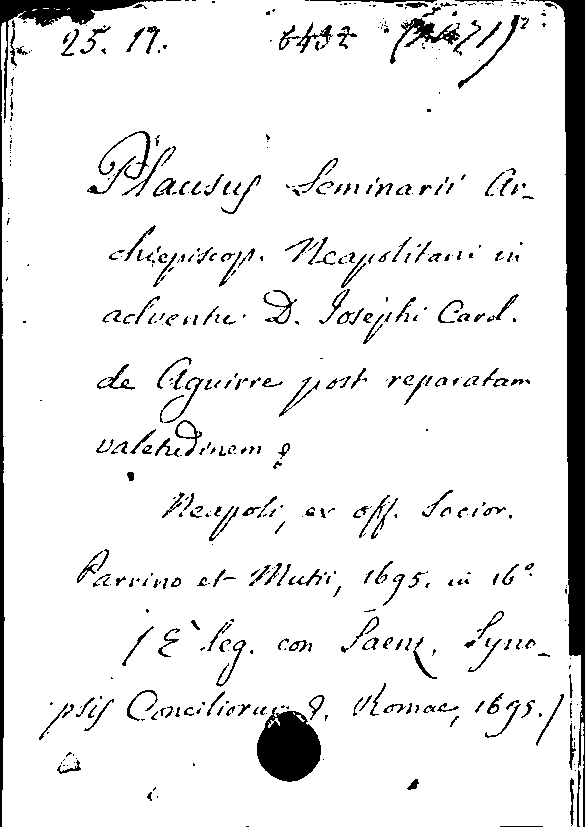 25. 17. 6432
Plausus Seminarii Ar-
chiepiscop. Neapolitani in
adventu D. Josephi Card.
de Aguirre post reparatam
valetudinem &
Neapoli, ex off. Socior.
Parrino et Mutii, 1695. in 16°
(È leg. con Saenz, Syno-
psis Conciliorum &. Romae, 1695.)